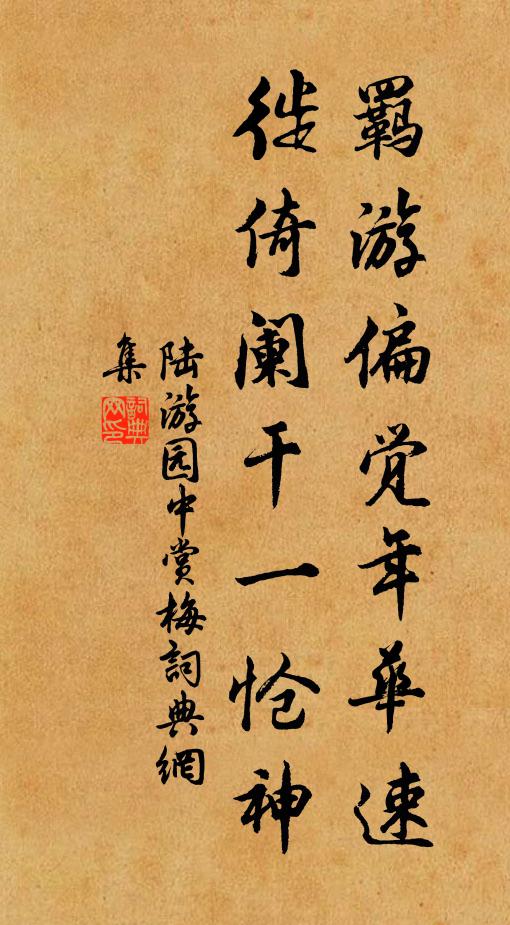 羁游偏觉年华速
徙倚阑干一怆神
陆游园中赏梅詞典網
集
詞典网印